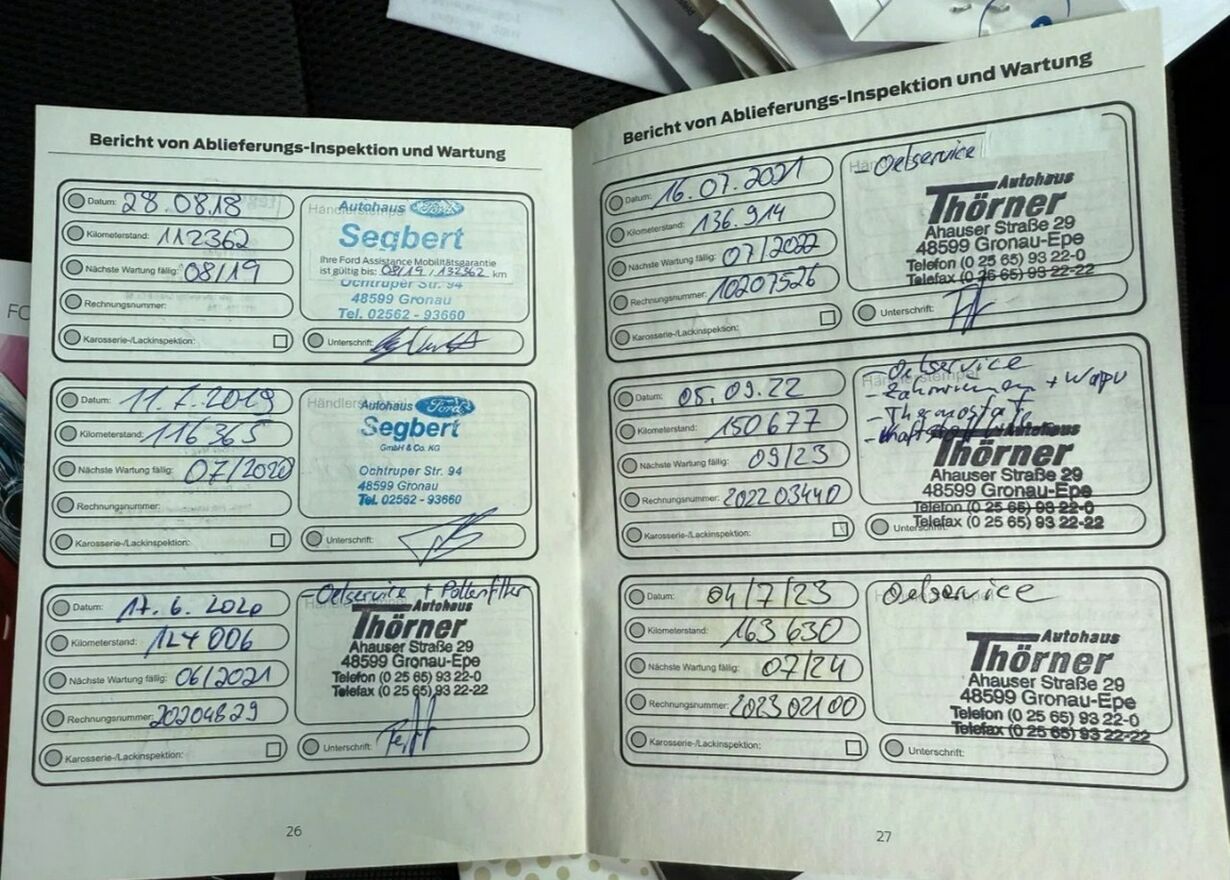 Bericht von Ablieferungs-Inspektion und Wartung
Datum: 28.08.18
Kilometerstand: 112362
Nächste Wartung fällig: 08/19
Rechnungsnummer:
Karosserie-/Lackinspektion:
Autohaus Ford
Segbert
Ihre Ford Assistance Mobilitätsgarantie
ist gültig bis: 08/19 / 132362 km
Ochtruper Str. 94
48599 Gronau
Tel. 02562 - 93660
Unterschrift:
Datum: 11.7.2019
Kilometerstand: 116365
Nächste Wartung fällig: 07/2020
Rechnungsnummer:
Karosserie-/Lackinspektion:
Händlerstempel
Autohaus Ford
Segbert
GmbH & Co. KG
Ochtruper Str. 94
48599 Gronau
Tel. 02562 - 93660
Unterschrift:
Datum: 17.6.2020
Kilometerstand: 124006
Nächste Wartung fällig: 06/2021
Rechnungsnummer: 20204829
Karosserie-/Lackinspektion:
- Oelservice + Pollenfilter
Autohaus
Thörner
Ahauser Straße 29
48599 Gronau-Epe
Telefon (0 25 65) 93 22-0
Telefax (0 25 65) 93 22-22
Unterschrift:
26
Bericht von Ablieferungs-Inspektion und Wartung
Datum: 16.07.2021
Kilometerstand: 136.914
Nächste Wartung fällig: 07/2022
Rechnungsnummer: 10207526
Karosserie-/Lackinspektion:
- Oelservice
Autohaus
Thörner
Ahauser Straße 29
48599 Gronau-Epe
Telefon (0 25 65) 93 22-0
Telefax (0 25 65) 93 22-22
Unterschrift:
Datum: 05.09.22
Kilometerstand: 150677
Nächste Wartung fällig: 09/23
Rechnungsnummer: 202203440
Karosserie-/Lackinspektion:
- Oelservice
- Zahnriemen + Wapu
- Thermostat
Autohaus
Thörner
Ahauser Straße 29
48599 Gronau-Epe
Telefon (0 25 65) 93 22-0
Telefax (0 25 65) 93 22-22
Datum: 04/7/23
Kilometerstand: 163630
Nächste Wartung fällig: 07/24
Rechnungsnummer: 202302100
Karosserie-/Lackinspektion:
Oelservice
Autohaus
Thörner
Ahauser Straße 29
48599 Gronau-Epe
Telefon (0 25 65) 93 22-0
Telefax (0 25 65) 93 22-22
Unterschrift:
27